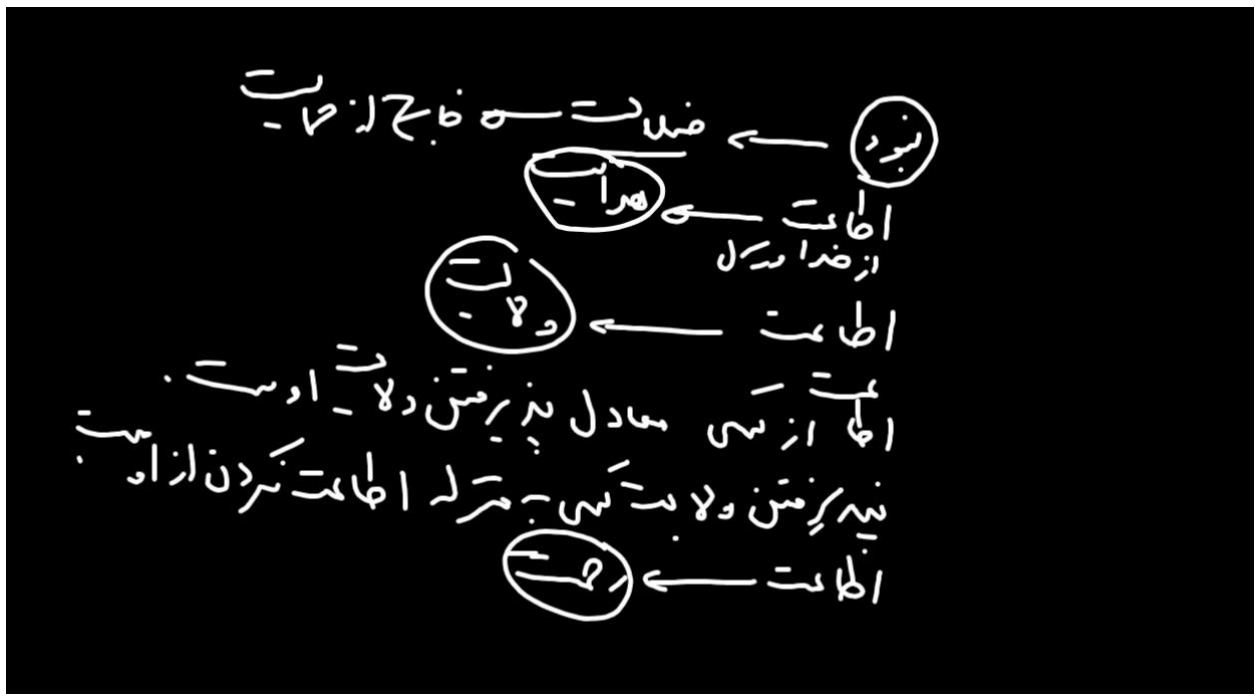 نبود ← ضلالت ← خارج از حمایت
اطاعت ← هدایت
از خدا و رسول
اطاعت ← ولایت
اطاعت از کسی معادل پذیرفتن ولایت اوست.
پذیرفتن ولایت کسی به منزله اطاعت کردن از اوست.
اطاعت ← رحمت